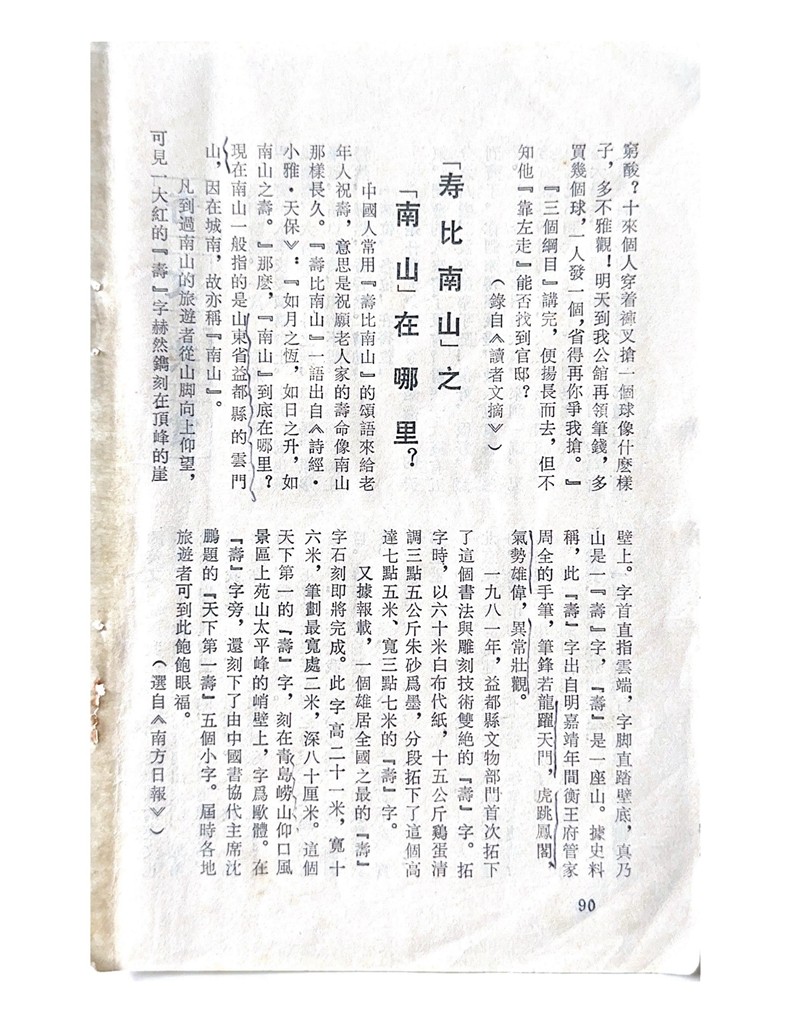 窮酸？十來個人穿着褲叉搶一個球像什麽樣
子，多不雅觀！明天到我公館再領筆錢，多
買幾個球，一人發一個，省得再你爭我搶。』
『三個綱目』講完，便揚長而去，但不
知他『靠左走』能否找到官邸？
（錄自《讀者文摘》）
「寿比南山」之
「南山」在哪里？
中國人常用『壽比南山』的頌語來給老
年人祝壽，意思是祝願老人家的壽命像南山
那樣長久。『壽比南山』一語出自《詩經·
小雅·天保》：『如月之恆，如日之升，如
南山之壽。』那麽，『南山』到底在哪里？
現在南山一般指的是山東省益都縣的雲門
山，因在城南，故亦稱『南山』。
凡到過南山的旅遊者從山脚向上仰望，
可見一大紅的『壽』字赫然鐫刻在頂峰的崖
壁上。字首直指雲端，字脚直踏壁底，真乃
山是一『壽』字，『壽』是一座山。據史料
稱，此『壽』字出自明嘉靖年間衡王府管家
周全的手筆，筆鋒若龍躍天門，虎跳鳳閣，
氣勢雄偉，異常壯觀。
一九八一年，益都縣文物部門首次拓下
了這個書法與雕刻技術雙絶的『壽』字。拓
字時，以六十米白布代紙，十五公斤鷄蛋清
調三點五公斤朱砂爲墨，分段拓下了這個高
達七點五米、寬三點七米的『壽』字。
又據報載，一個雄居全國之最的『壽』
字石刻即將完成。此字高二十一米，寬十
六米，筆劃最寬處二米，深八十厘米。這個
天下第一的『壽』字，刻在青島嶗山仰口風
景區上苑山太平峰的峭壁上，字爲歐體。在
『壽』字旁，還刻下了由中國書協代主席沈
鵬題的『天下第一壽』五個小字。屆時各地
旅遊者可到此飽飽眼福。
（選自《南方日報》）
90